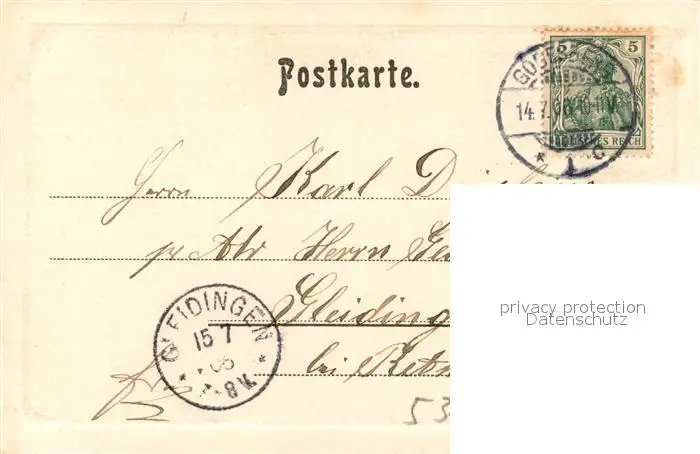 Postkarte.
5 5
DEUTSCHES REICH
14.7.06 10-11V.
* 1 C
Herrn Karl
pr Adr Herrn
Gleiding
bei
GLEIDINGEN
15 7
06
7-8V.
* *
privacy protection
Datenschutz
53